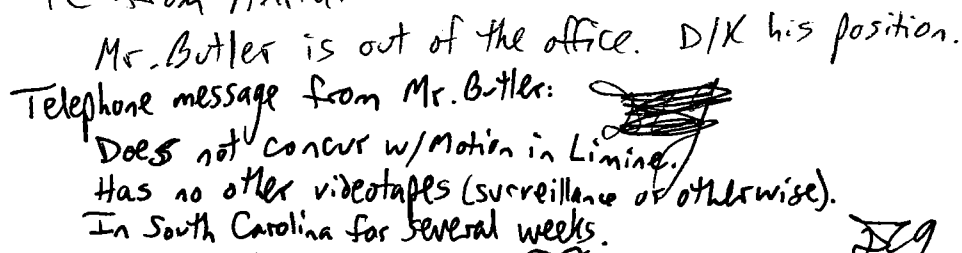 Mr. Butler is out of the office. D/K his position.
Telephone message from Mr. Butler:
Does not concur w/Motion in Limine.
Has no other videotapes (surveillance or otherwise).
In South Carolina for several weeks.